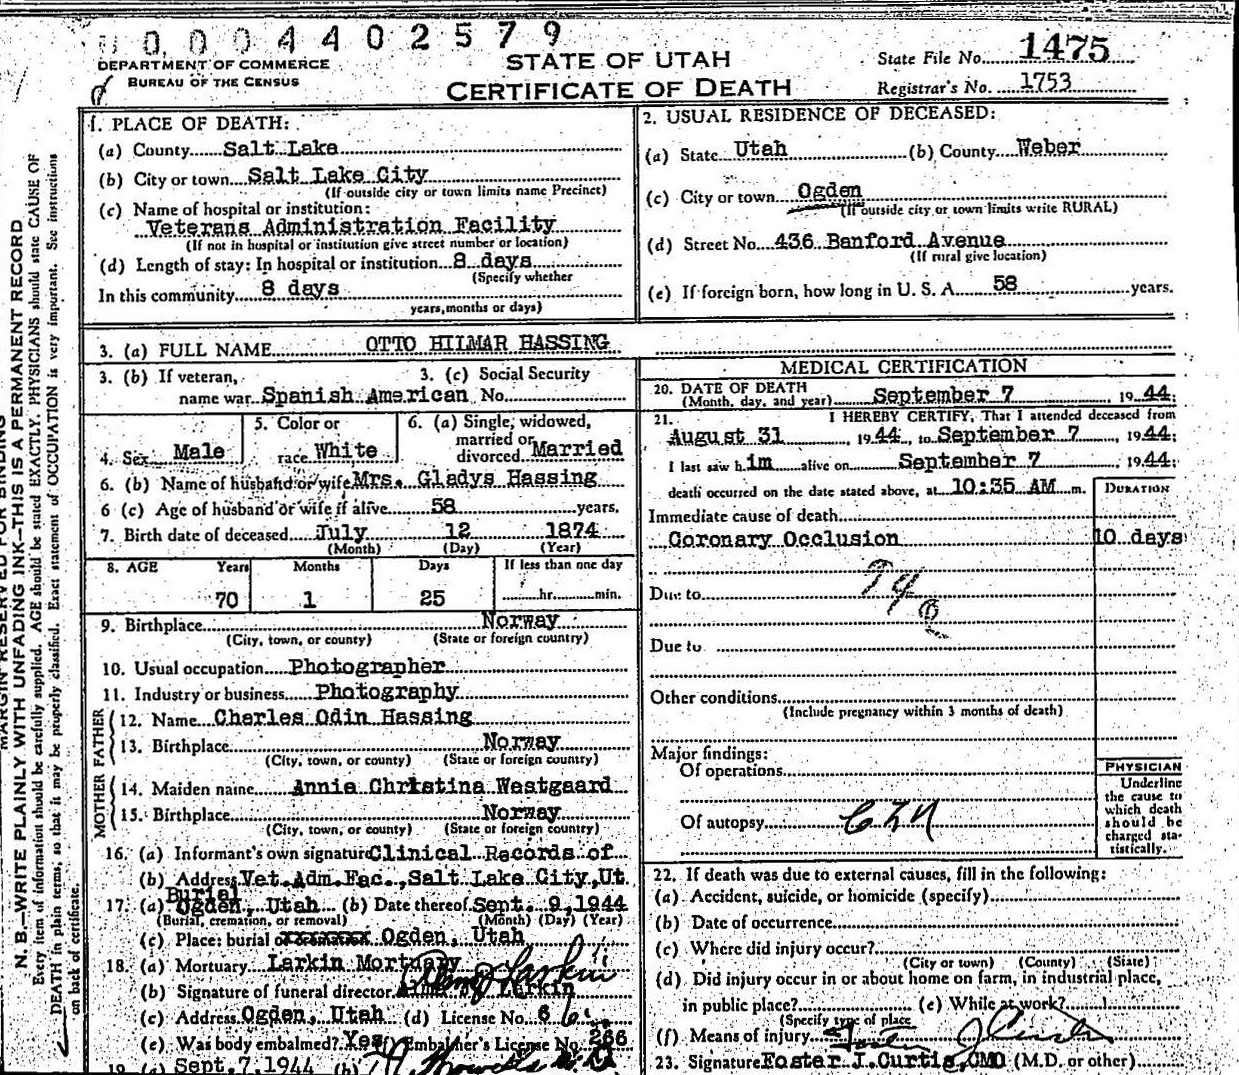 0004402579
DEPARTMENT OF COMMERCE
BUREAU OF THE CENSUS
STATE OF UTAH
CERTIFICATE OF DEATH
State File No. 1475
Registrar's No. 1753
MARGIN RESERVED FOR BINDING
N. B.—WRITE PLAINLY WITH UNFADING INK—THIS IS A PERMANENT RECORD
Every item of information should be carefully supplied. AGE should be stated EXACTLY. PHYSICIANS should state CAUSE OF
DEATH in plain terms, so that it may be properly classified. Exact statement of OCCUPATION is very important. See instructions
on back of certificate.
1. PLACE OF DEATH:
(a) County Salt Lake
(b) City or town Salt Lake City
(If outside city or town limits name Precinct)
(c) Name of hospital or institution:
Veterans Administration Facility
(If not in hospital or institution give street number or location)
(d) Length of stay: In hospital or institution 8 days
(Specify whether
In this community 8 days
years, months or days)
2. USUAL RESIDENCE OF DECEASED:
(a) State Utah (b) County Weber
(c) City or town Ogden
(If outside city or town limits write RURAL)
(d) Street No. 436 Banford Avenue
(If rural give location)
(e) If foreign born, how long in U. S. A. 58 years.
3. (a) FULL NAME OTTO HILMAR HASSING
3. (b) If veteran, 3. (c) Social Security
name war Spanish American No.
4. Sex Male
5. Color or
race White
6. (a) Single, widowed,
married or
divorced Married
6. (b) Name of husband or wife Mrs. Gladys Hassing
6 (c) Age of husband or wife if alive 58 years.
7. Birth date of deceased July 12 1874
(Month) (Day) (Year)
8. AGE Years Months Days If less than one day
70 1 25 hr. min.
9. Birthplace Norway
(City, town, or county) (State or foreign country)
10. Usual occupation Photographer
11. Industry or business Photography
FATHER
12. Name Charles Odin Hassing
13. Birthplace Norway
(City, town, or county) (State or foreign country)
MOTHER
14. Maiden name Annie Christina Westgaard
15. Birthplace Norway
(City, town, or county) (State or foreign country)
16. (a) Informant's own signature Clinical Records of
(b) Address Vet.Adm.Fac., Salt Lake City, Ut
Burial
17. (a) Ogden, Utah (b) Date thereof Sept. 9, 1944
(Burial, cremation, or removal) (Month) (Day) (Year)
(c) Place: burial or Ogden, Utah
18. (a) Mortuary Larkin Mortuary
(b) Signature of funeral director Larkin
(c) Address Ogden, Utah (d) License No. 6
(e) Was body embalmed? Yes (f) Embalmer's License No. 266
19. (a) Sept. 7, 1944 (b)
MEDICAL CERTIFICATION
20. DATE OF DEATH
(Month, day, and year) September 7 1944
21. I HEREBY CERTIFY, That I attended deceased from
August 31, 1944, to September 7, 1944;
I last saw him alive on September 7 1944;
death occurred on the date stated above, at 10:35 AM m.
DURATION
Immediate cause of death
Coronary Occlusion 10 days
Due to
Due to
Other conditions
(Include pregnancy within 3 months of death)
Major findings:
Of operations
Of autopsy
PHYSICIAN
Underline
the cause to
which death
should be
charged sta-
tistically.
22. If death was due to external causes, fill in the following:
(a) Accident, suicide, or homicide (specify)
(b) Date of occurrence
(c) Where did injury occur?
(City or town) (County) (State)
(d) Did injury occur in or about home on farm, in industrial place,
in public place? (e) While at work?
(Specify type of place
(f) Means of injury Foster J. Curtis
23. Signature Foster J. Curtis, CMO (M.D. or other)